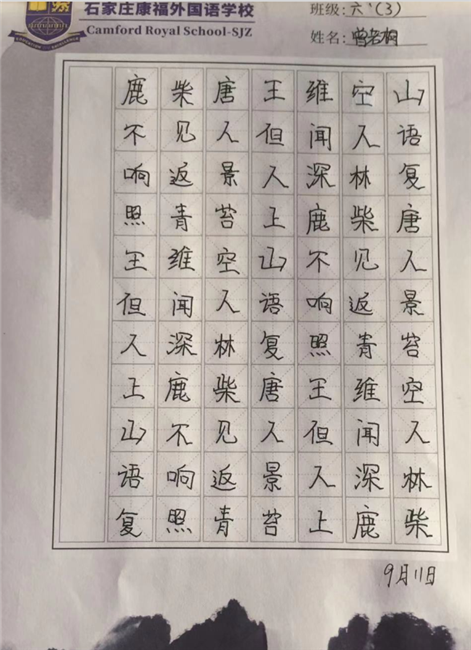 石家庄康福外国语学校
Camford Royal School-SJZ
班级:六、(3)
姓名:
鹿柴唐王维空山
不见人但闻人语
响返景入深林复
照青苔上鹿柴唐
王维空山不见人
但闻人语响返景
入深林复照青苔
上鹿柴唐王维空
山不见人但闻人
语响返景入深林
复照青苔上鹿柴
9月11日